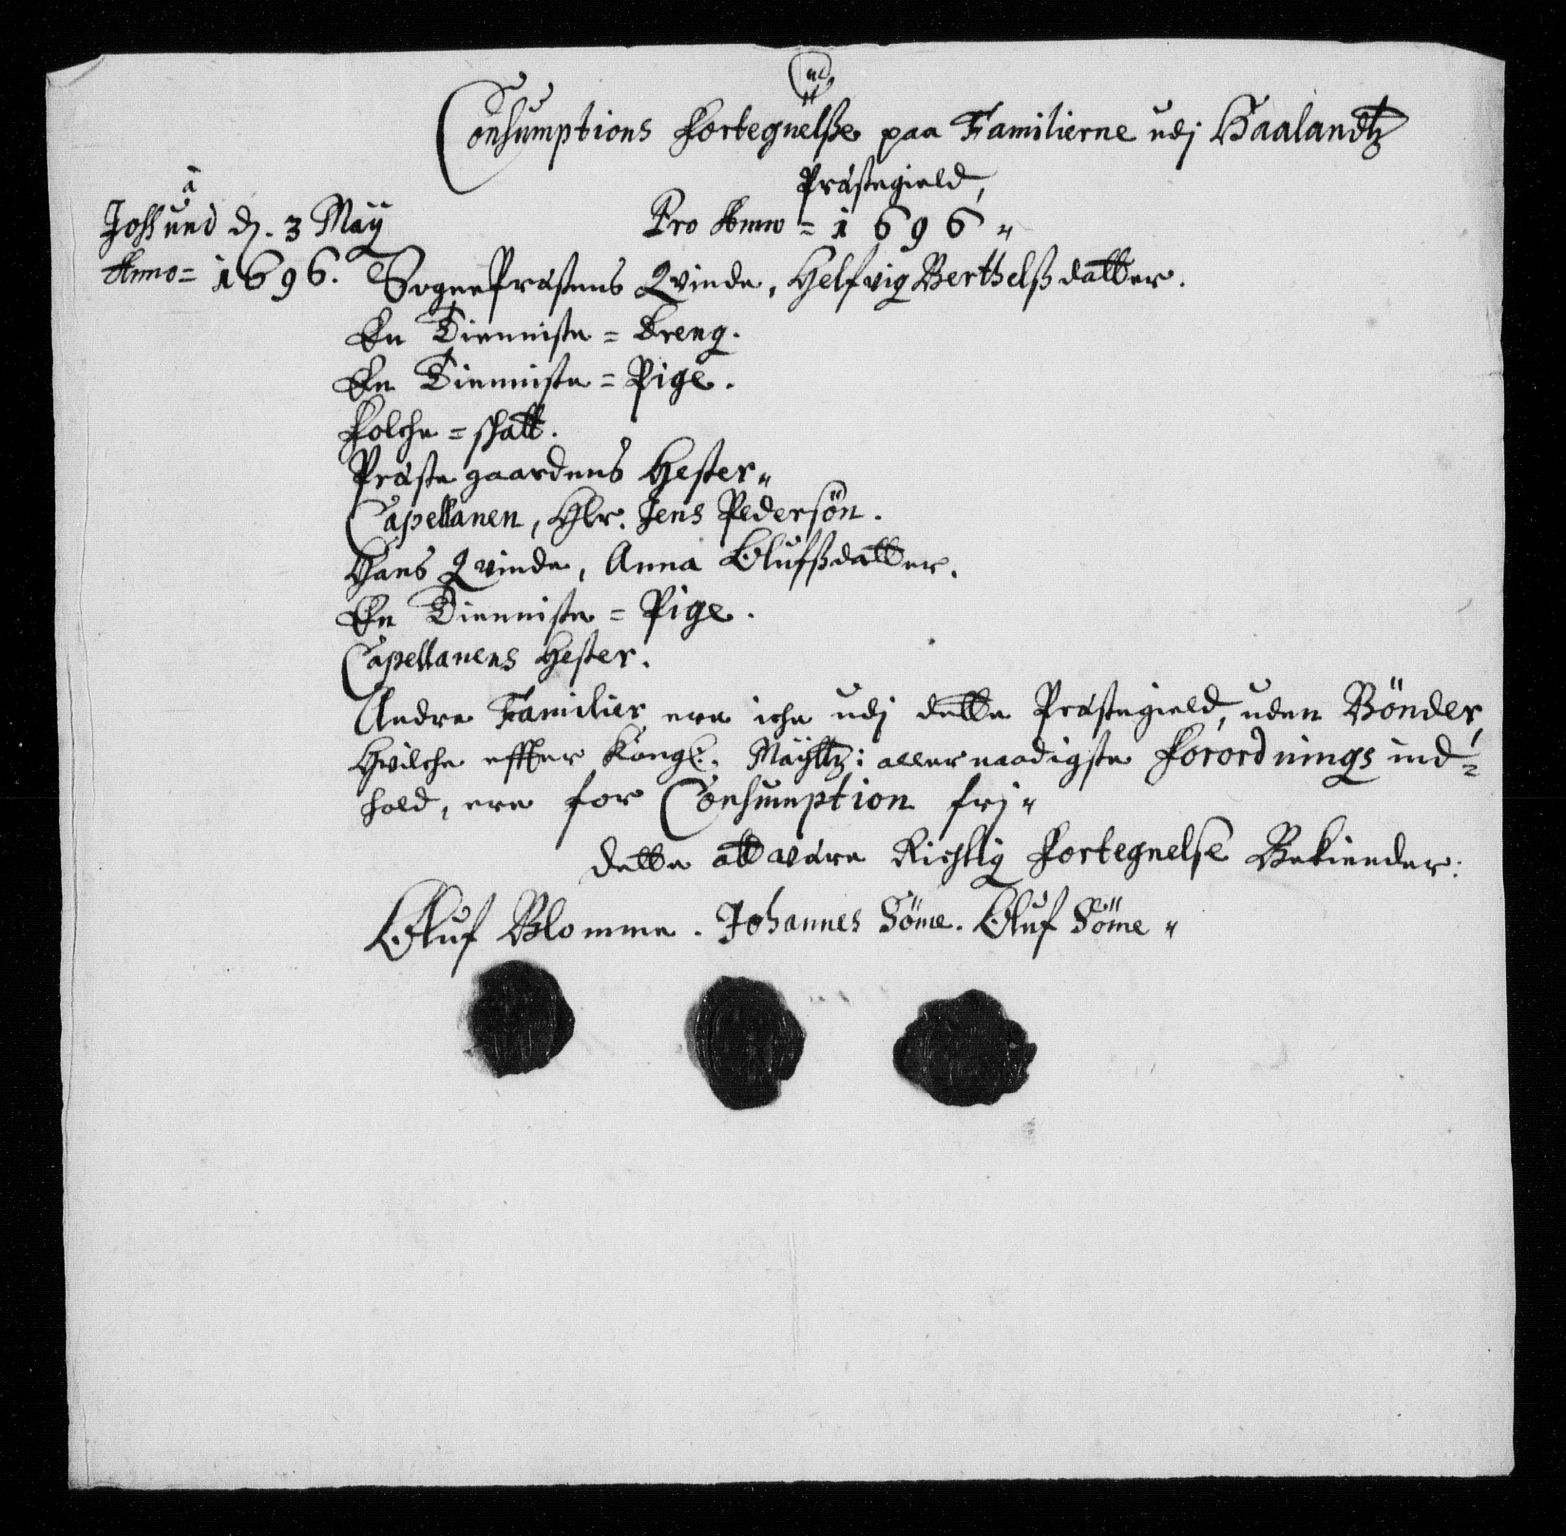 Consumptions Fortegnelße paa Familierne udj Haalandtz
Præstegield,
Pro Anno = 1696 "
a
Jossund d. 3 Maÿ
Anno = 1696.
SognePræstens Qvinde, Helfvig Berthelßdatter.
En Tienniste = Dreng.
En Tienniste = Pige.
Folche = skatt.
Præstegaardens Hester "
Capellanen, Hr. Jens Pedersön.
Hans Qvinde, Anna Olufßdatter.
En Tienniste = Pige.
Capellanens Hester.
Andre Familier ere iche udj dette Præstegield, uden Bönder,
Hvilche effter Kongl. Maÿttz: allernaadigste Forordnings ind=
hold, ere for Consumption frj "
Dette att være Richtig Fortegnelse Bekiender:
Oluf Blomme. Johannes Söme. Oluf Söme "